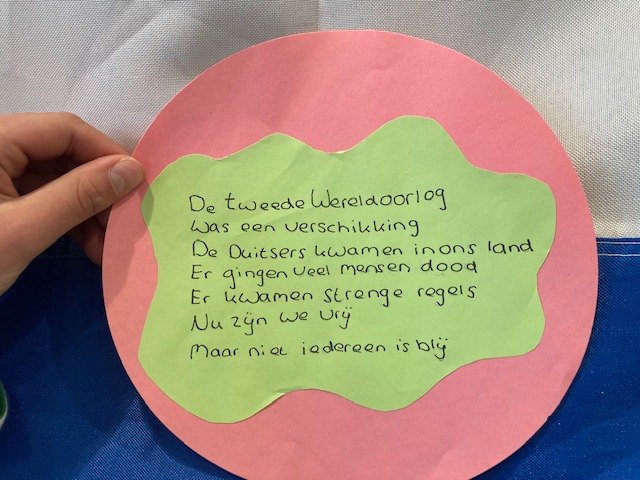 De tweede Wereldoorlog
Was een verschikking
De Duitsers kwamen in ons land
Er gingen veel mensen dood
Er kwamen strenge regels
Nu zijn we vrij
Maar niet iedereen is blij